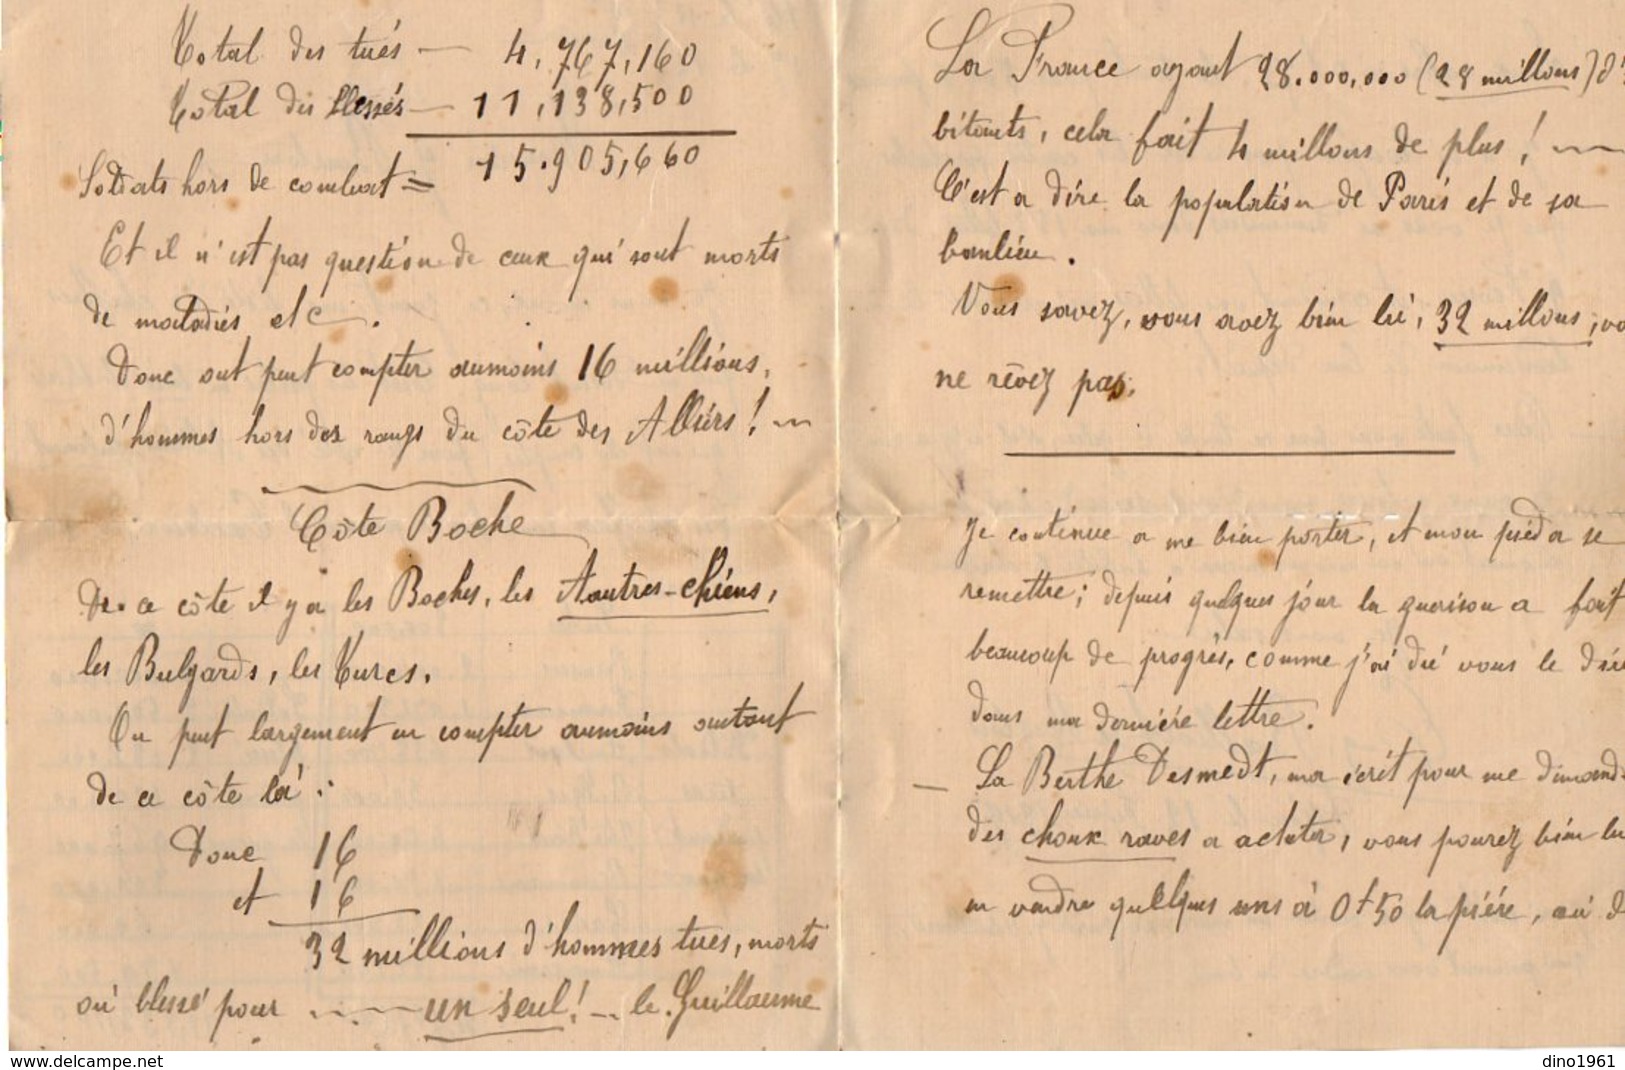 Total des tués — 4,767,160
Total des blessés — 11,138,500
15.905,660
Soldats hors de combat =
Et il n'est pas question de ceux qui sont morts
de maladies etc.
Donc ont peut compter aumoins 16 millions,
d'hommes hors des rangs du côte des Alliérs! —
Côte Boche
De ce côte il y a les Boches, les Autres-chiens,
les Bulgards, les Turcs.
On peut largement en compter aumoins autant
de ce côte là :
Donc 16
et 16
32 millions d'hommes tues, morts
ou blessé pour — un seul! — le Guillaume
La France ayant 28.000,000 (28 millons) d'
bitants, cela fait 4 millons de plus! —
C'est a dire la population de Paris et de sa
banlieu.
Vous savez, vous avez bien lu, 32 millons, vo
ne rêvez pas.
Je continue a me bien porter, et mon pied a se
remettre; depuis quelques jour la guerison a fait
beaucoup de progrès, comme j'ai du vous le dire
dans ma dernière lettre.
— La Berthe Desmedt, ma écrit pour me demand
des choux raves a acheter, vous pourez bien lu
en vendre quelques uns à 0f50 la pièce, au d
www.delcampe.net
dino1961